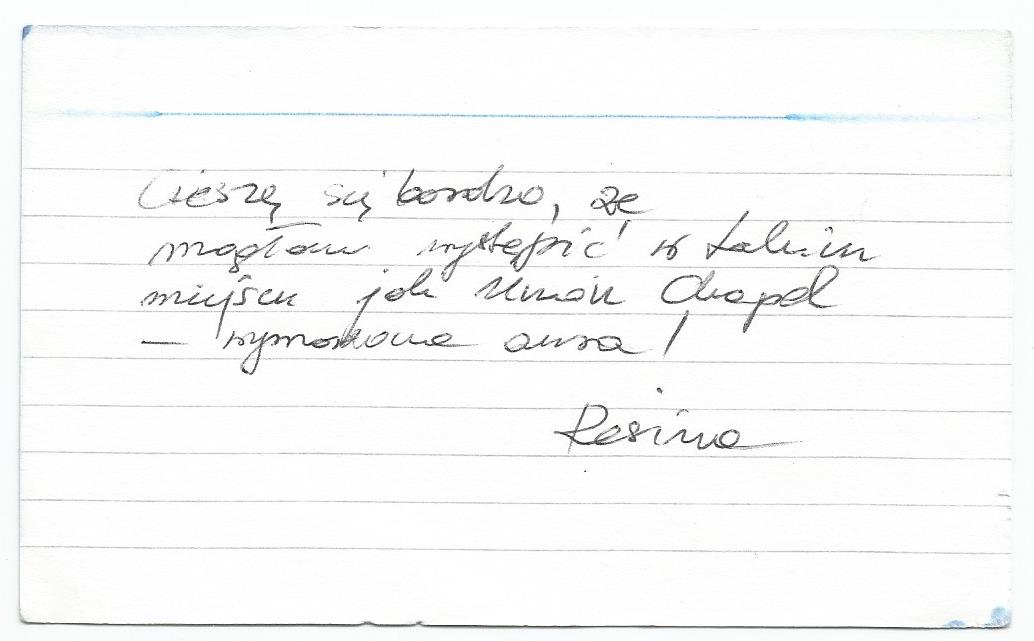 Cieszę się bardzo, że
mogłam wystąpić w takim
miejscu jak Union Chapel
– wymarzona aura!
Resina